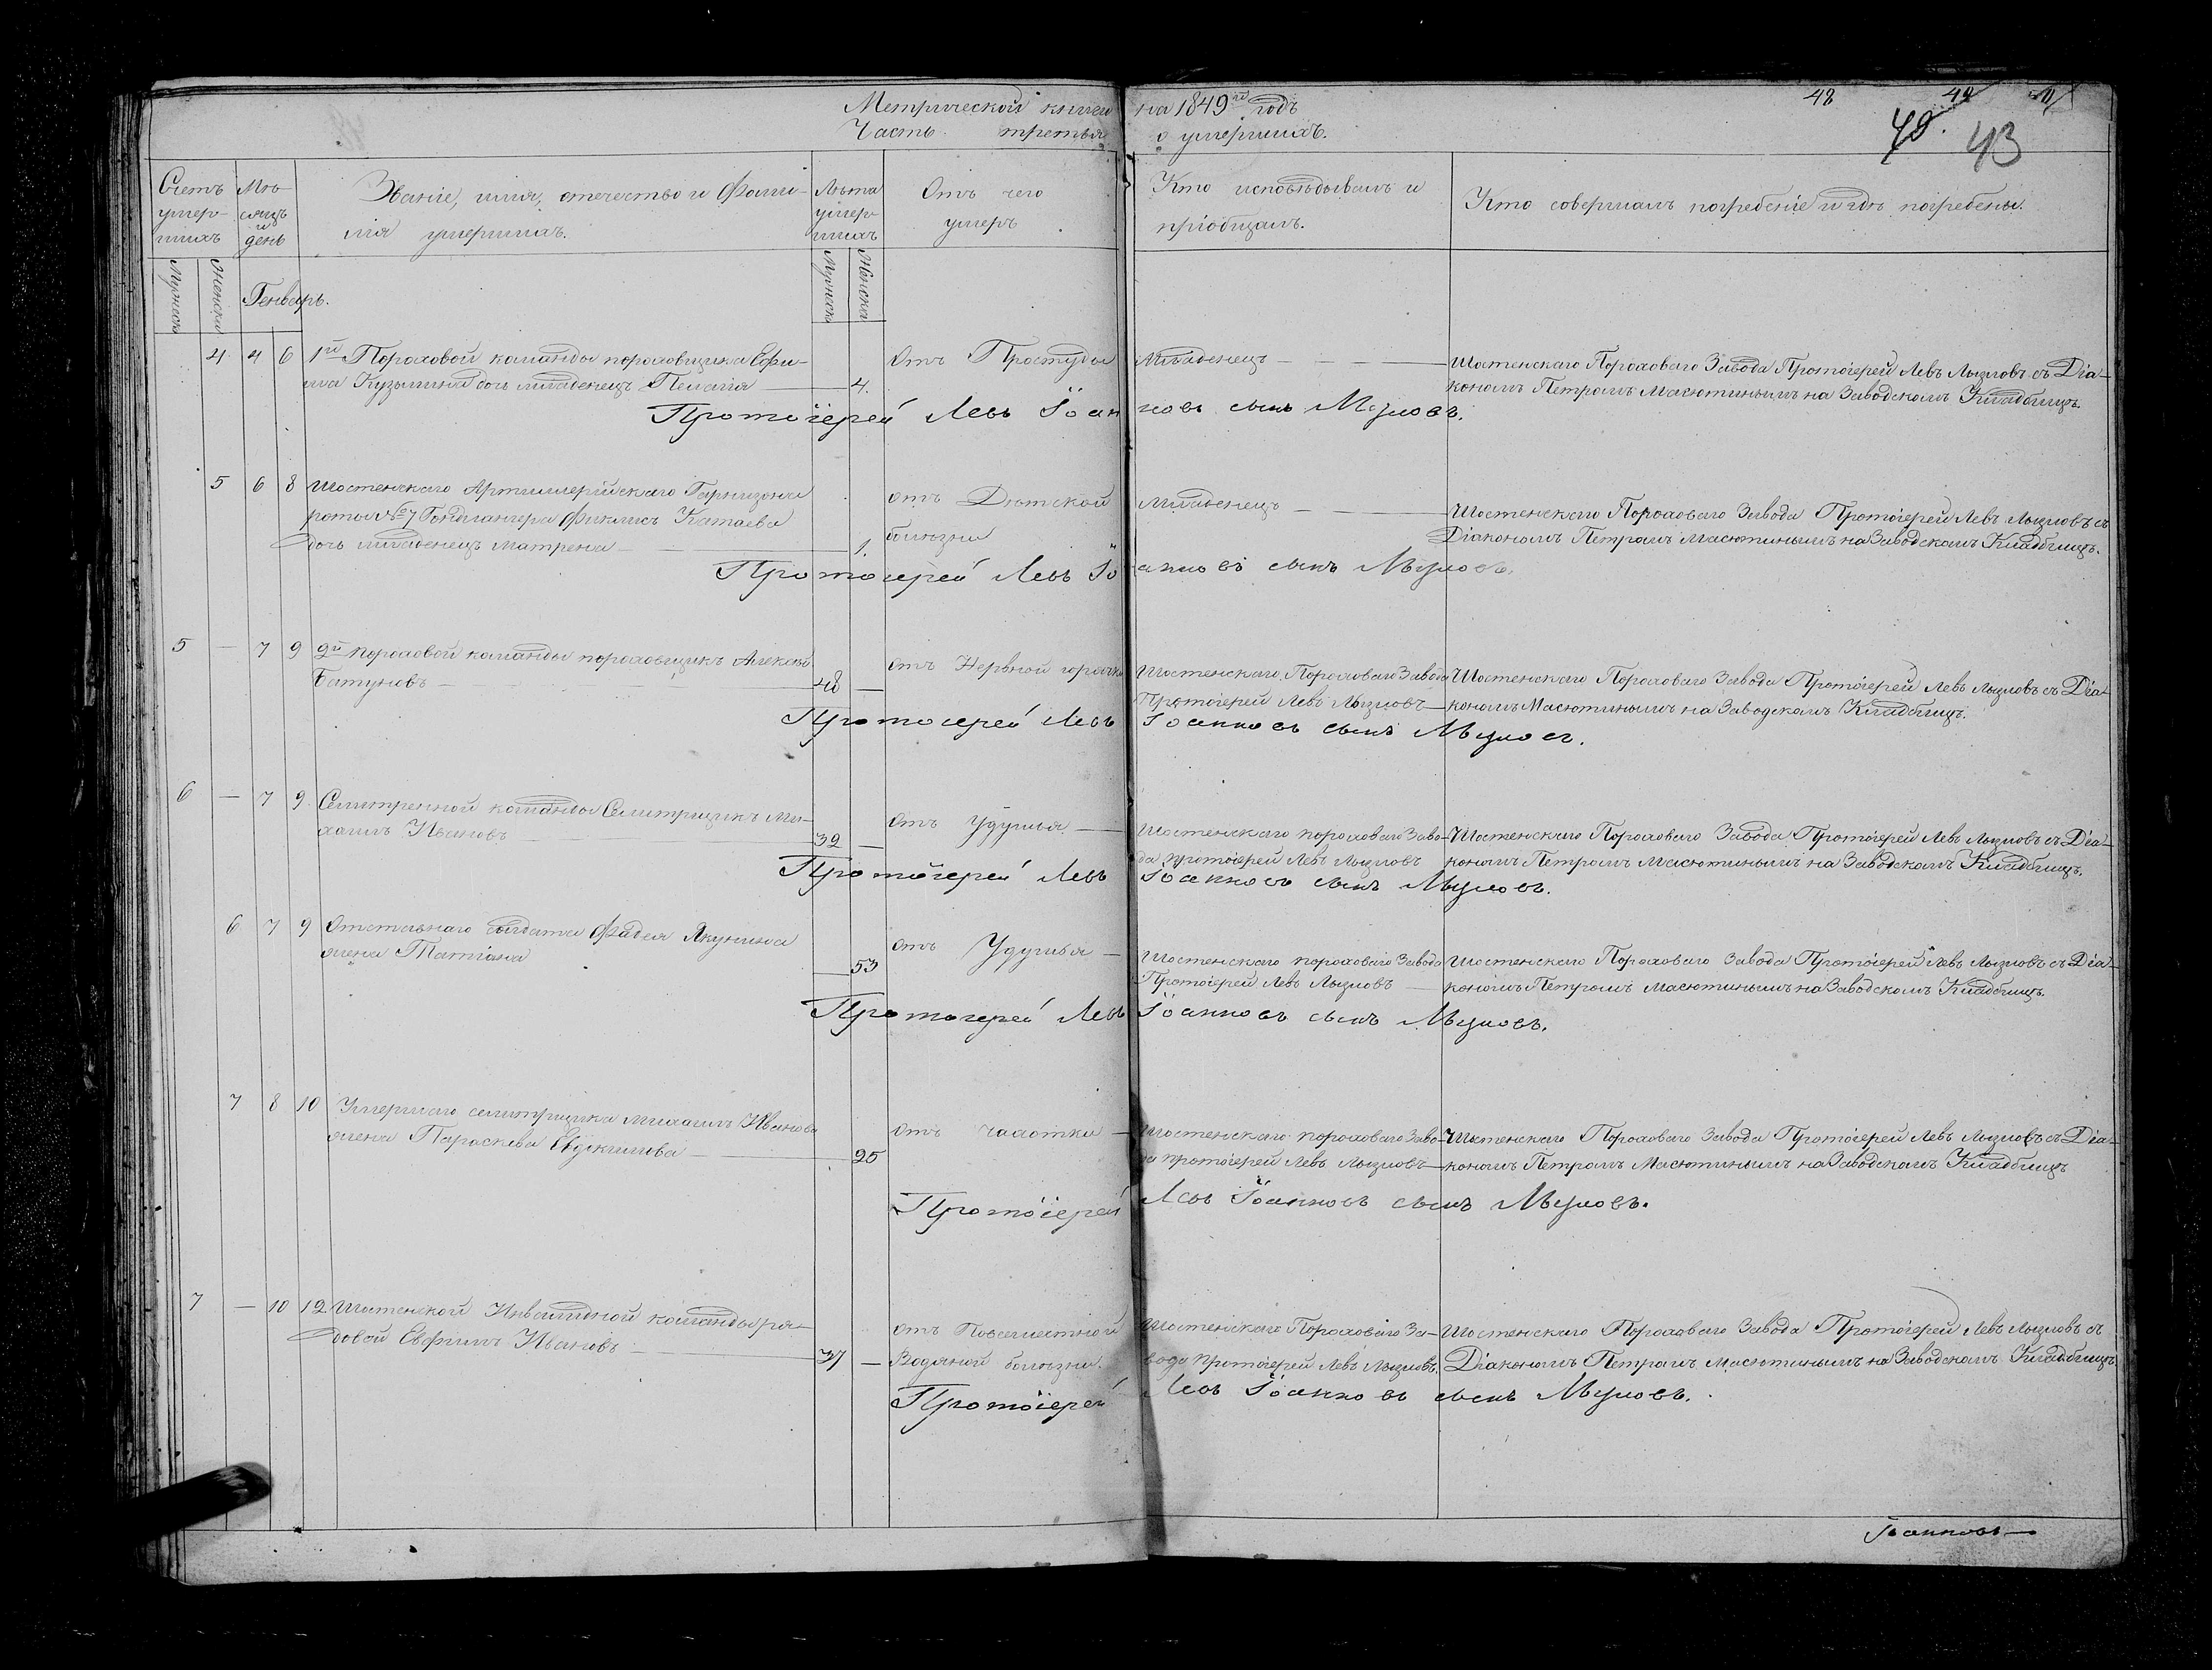 Метрической книги на 1849й годъ
Часть третья о умершихъ.
48 49
49. 43
Счетъ умер-шихъ
Мѣ-сяцъ и день
Званіе, имя, отечество и фами-
лія умершихъ.
Лѣта умер-шихъ
Отъ чего
умеръ
Кто исповѣдывалъ и
пріобщалъ.
Кто совершалъ погребеніе и гдѣ погребены.
Мужеск
Женска
Генварь.
Мужеск
Женска
4 4 6 1й Пороховой команды пороховщика Ефи- отъ Простуды Младенецъ Шостенскаго Пороховаго Завода Протоіерей Левъ Лызловъ съ Діа-
ма Кузьмина дочь младенецъ Пелагія 4. кономъ Петромъ Масютинымъ на Заводскомъ Кладбищѣ.
Протоіерей Левъ Іоанновъ сынъ Лызловъ.
5 6 8 Шостенскаго Артиллерійскаго Гарнизона отъ Дѣтской Младенецъ Шостенскаго Пороховаго Завода Протоіерей Левъ Лызловъ съ
роты №7 Гондлангера Катаева болѣзни Діакономъ Петромъ Масютинымъ на Заводскомъ Кладбищѣ.
дочь младенецъ Матрена 1.
Протоіерей Левъ Іоанновъ сынъ Лызловъ.
5 — 7 9 2й пороховой команды пороховщикъ Алексѣй отъ Нервной горячки Шостенскаго Пороховаго Завода Шостенскаго Пороховаго Завода Протоіерей Левъ Лызловъ съ Діа-
Батуновъ 48 — Протоіерей Левъ Лызловъ кономъ Масютинымъ на Заводскомъ Кладбищѣ.
Протоіерей Левъ Іоанновъ сынъ Лызловъ.
6 — 7 9 Селитренной команды Селитрщикъ Ми- отъ Удушья Шостенскаго пороховаго Заво- Шостенскаго Пороховаго Завода Протоіерей Левъ Лызловъ съ Діа-
хаилъ Ивановъ 32 — да протоіерей Левъ Лызловъ кономъ Петромъ Масютинымъ на Заводскомъ Кладбищѣ.
Протоіерей Левъ Іоанновъ сынъ Лызловъ.
6 7 9 Отставнаго солдата Фадея Якунина отъ Удушья Шостенскаго пороховаго Завода Шостенскаго Пороховаго Завода Протоіерей Левъ Лызловъ съ Діа-
жена Татіана 53 Протоіерей Левъ Лызловъ кономъ Петромъ Масютинымъ на Заводскомъ Кладбищѣ.
Протоіерей Левъ Іоанновъ сынъ Лызловъ.
7 8 10 Умершаго селитрщика Михаила Иванова отъ чахотки Шостенскаго пороховаго Заво- Шостенскаго Пороховаго Завода Протоіерей Левъ Лызловъ съ Діа-
жена Параскева Евдокимова 25 да протоіерей Левъ Лызловъ кономъ Петромъ Масютинымъ на Заводскомъ Кладбищѣ
Протоіерей Левъ Іоанновъ сынъ Лызловъ.
7 — 10 12 Шостенской Инвалидной команды ря- отъ Повсеместной Шостенскаго Пороховаго За- Шостенскаго Пороховаго Завода Протоіерей Левъ Лызловъ съ
довой Евфимъ Ивановъ 37 — Водяной болѣзни. вода протоіерей Левъ Лызловъ. Діакономъ Петромъ Масютинымъ на Заводскомъ Кладбищѣ.
Протоіерей Левъ Іоанновъ сынъ Лызловъ.
Іоанновъ